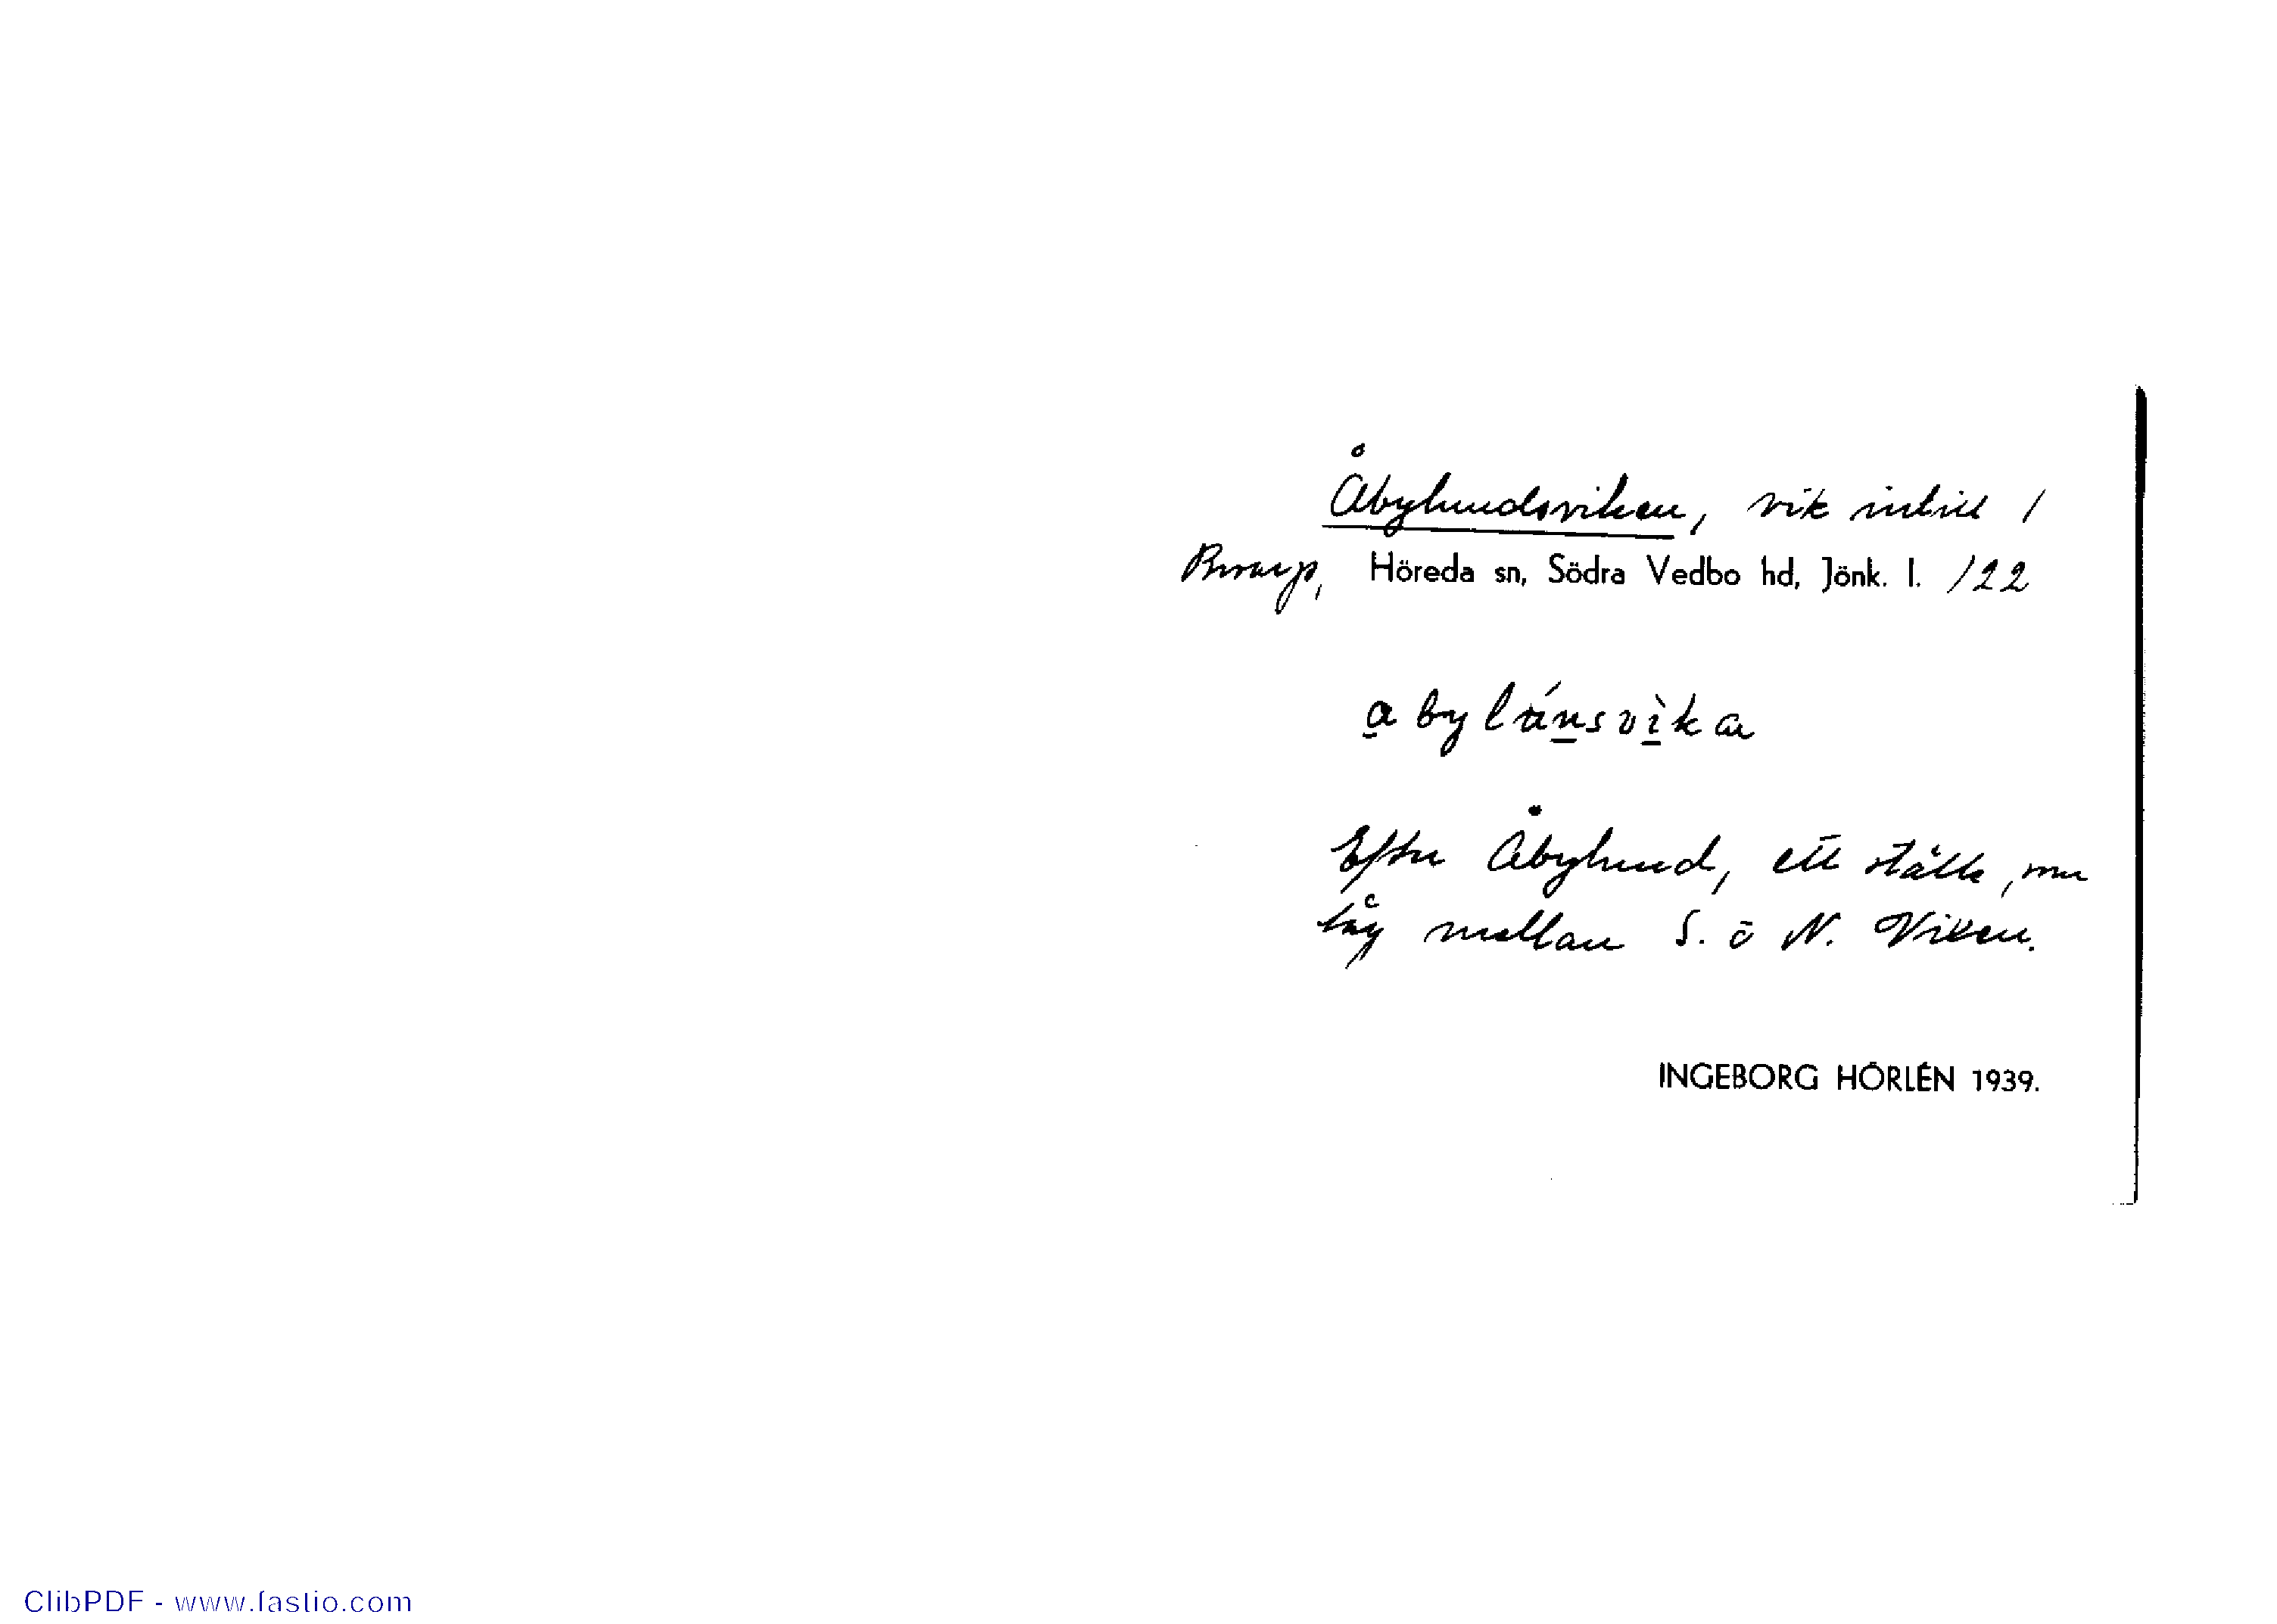 Åbylundsviken, vik intill /
Höreda sn, Södra Vedbo hd, Jönk. l. /22
a bylúnsvìka
Efter Åbylund, ett ställe, som
låg mellan S. o N. Viken.
INGEBORG HÖRLÉN 1939.
ClibPDF - www.fastio.com